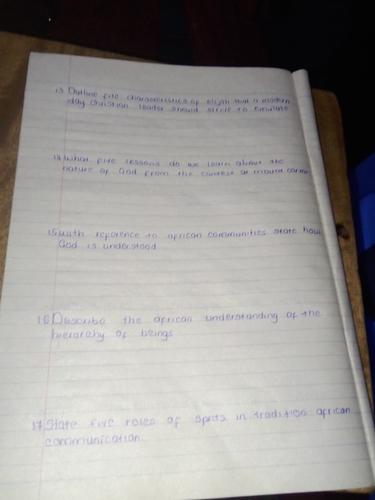 13 Outline five characteristics of Elijah that a modern
day Christian leader should strive to emulate
14 What five lessons do we learn about the
nature of God from the contest at mount carmel
15 with reference to african communities state how
God is understood
16 Describe the african understanding of the
hierarchy of beings
17 State five roles of spirits in tradition african
communication